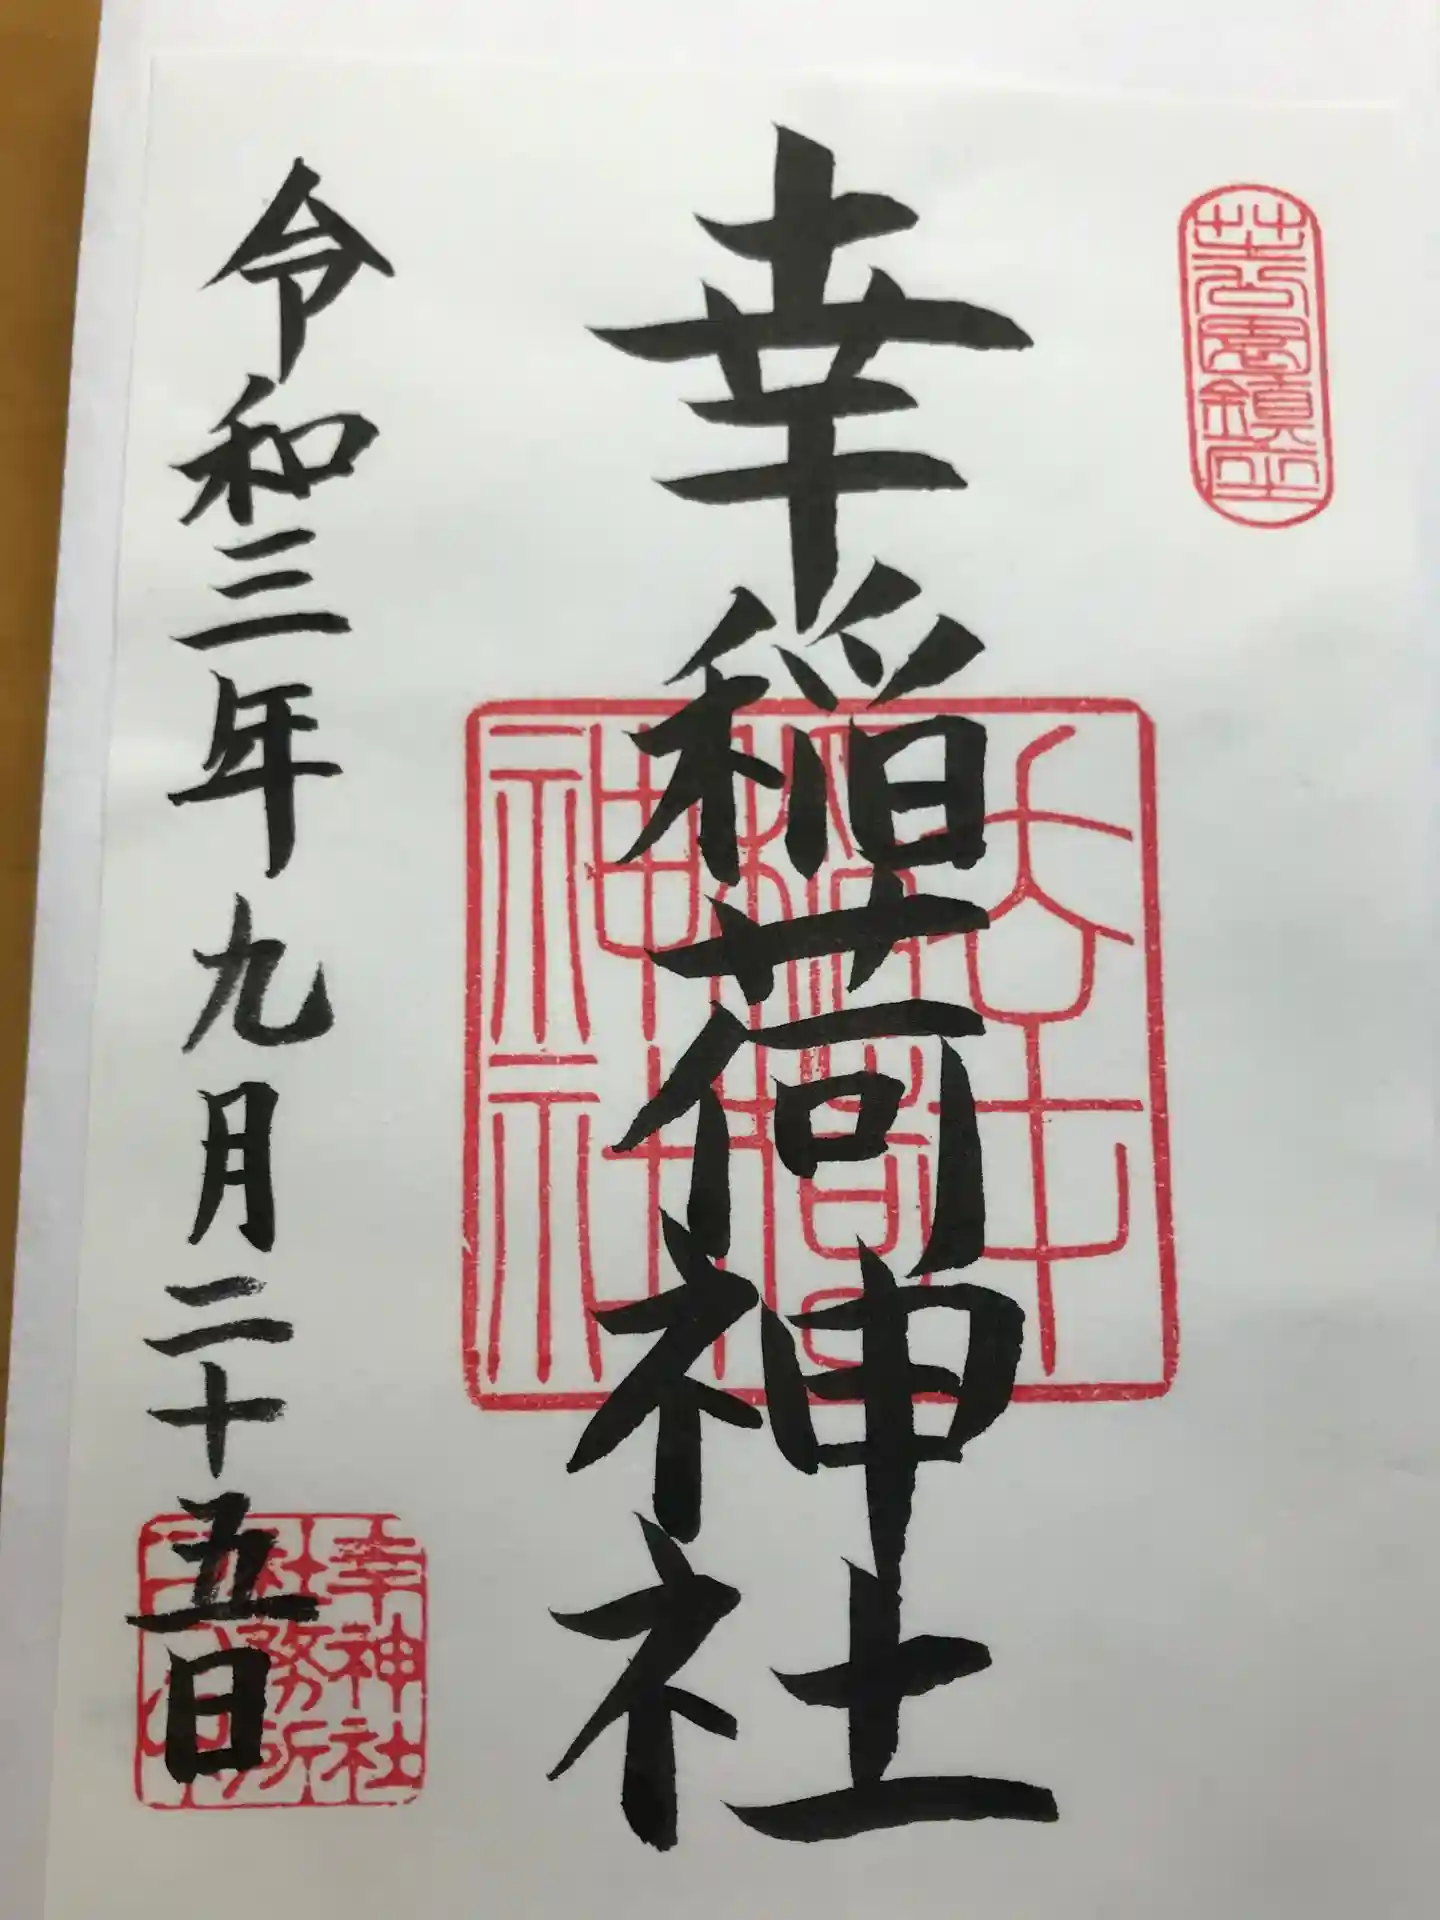 芝公園鎮座
幸稲荷神社
幸稲荷神社
令和三年九月二十五日
幸神社
社務所